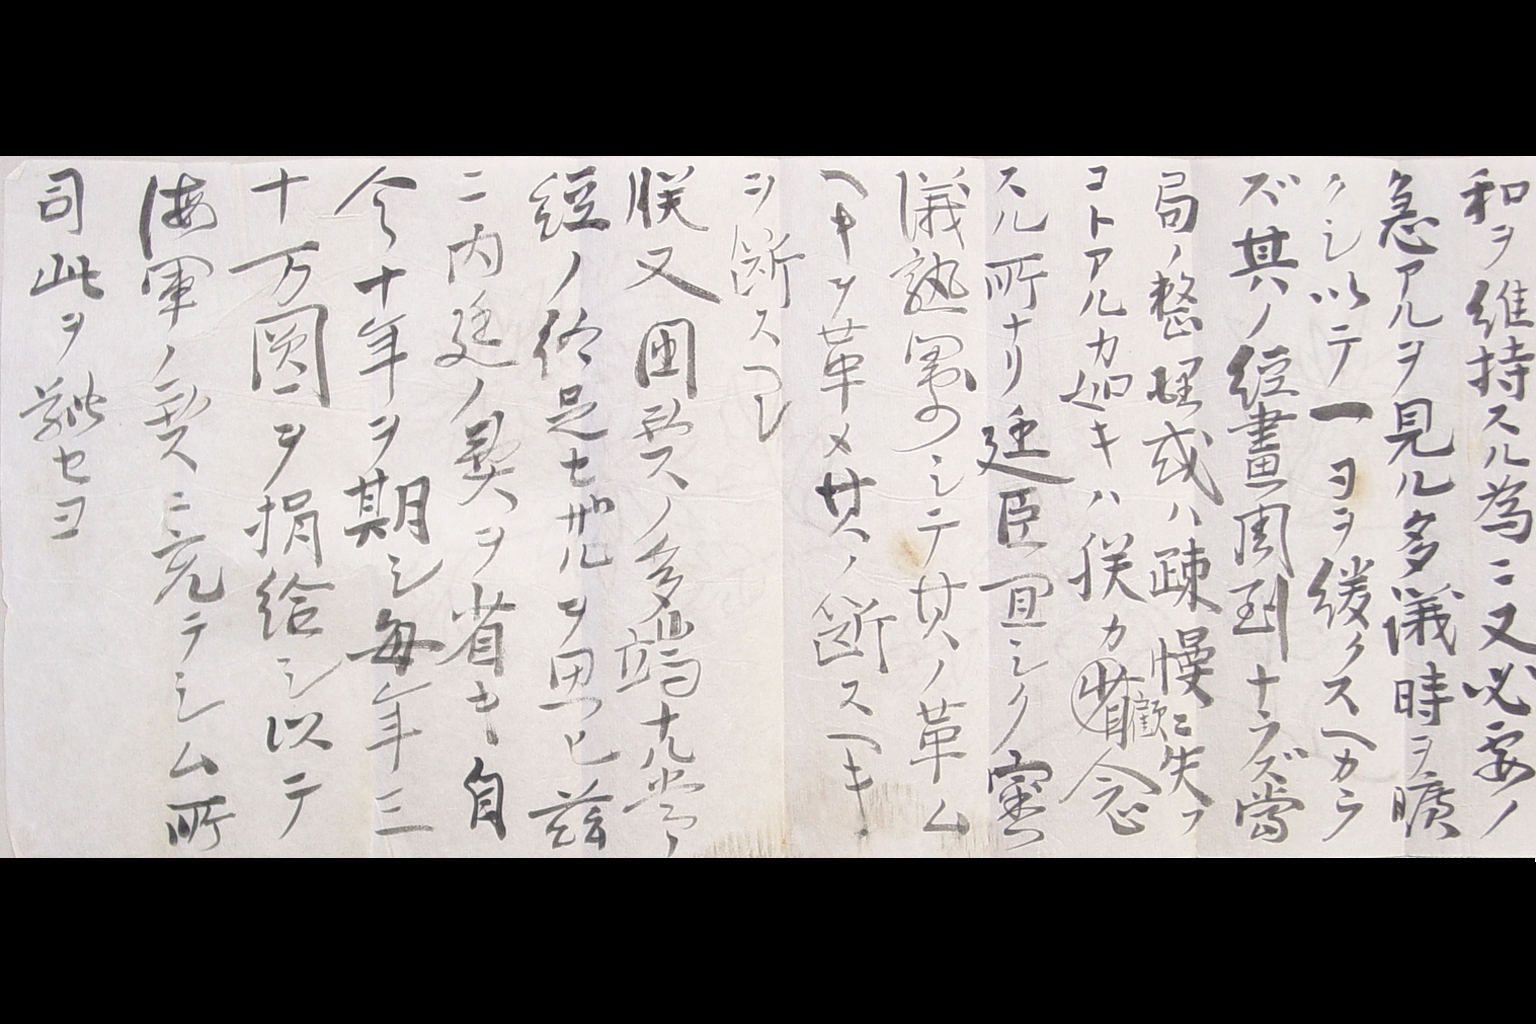 和ヲ維持スル為ニ又必要ノ
急アルヲ見ル多議時ヲ曠
クシ以テ一日ヲ緩クスヘカラ
ズ其ノ経畫周到ナラズ當
局ノ整理或ハ疎慢ニ失フ
コトアルカ如キハ朕カ眷顧念
スル所ナリ廷臣宜シク密
議熟畧シテ其ノ革ム
ヘキヲ革メ其ノ断スヘキ
ヲ断スヘシ
朕又国費ノ多端尤常
経ノ給足セザルヲ思ヒ茲
ニ内廷ノ費ヲ省キ自
今十年ヲ期シ毎年三
十万圓ヲ捐給シ以テ
海軍ノ費ニ充テシム所
司此ヲ
セヨ